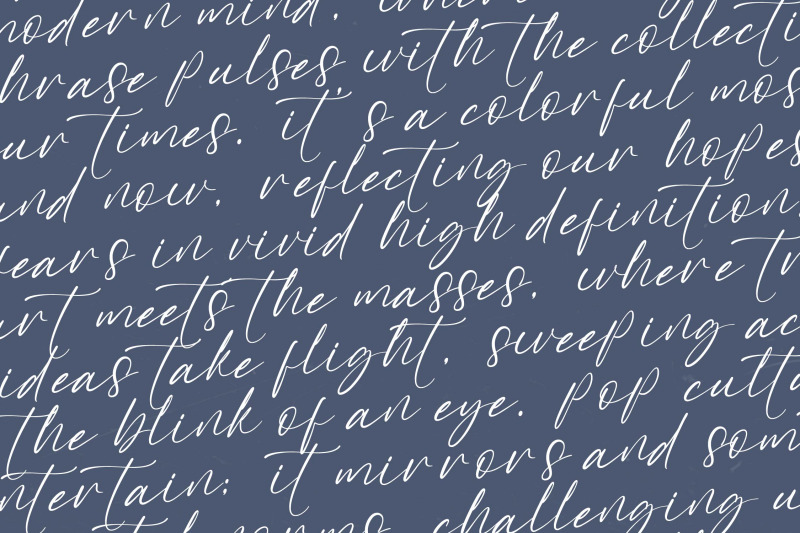 modern mind. where
hrase pulses, with the collecti
ur times. it's a colorful mos
and now, reflecting our hopes
ears in vivid high definition.
art meets the masses, where tr
ideas take flight, sweeping ac
the blink of an eye. pop cultu
ntertain; it mirrors and som
norms, challenging u